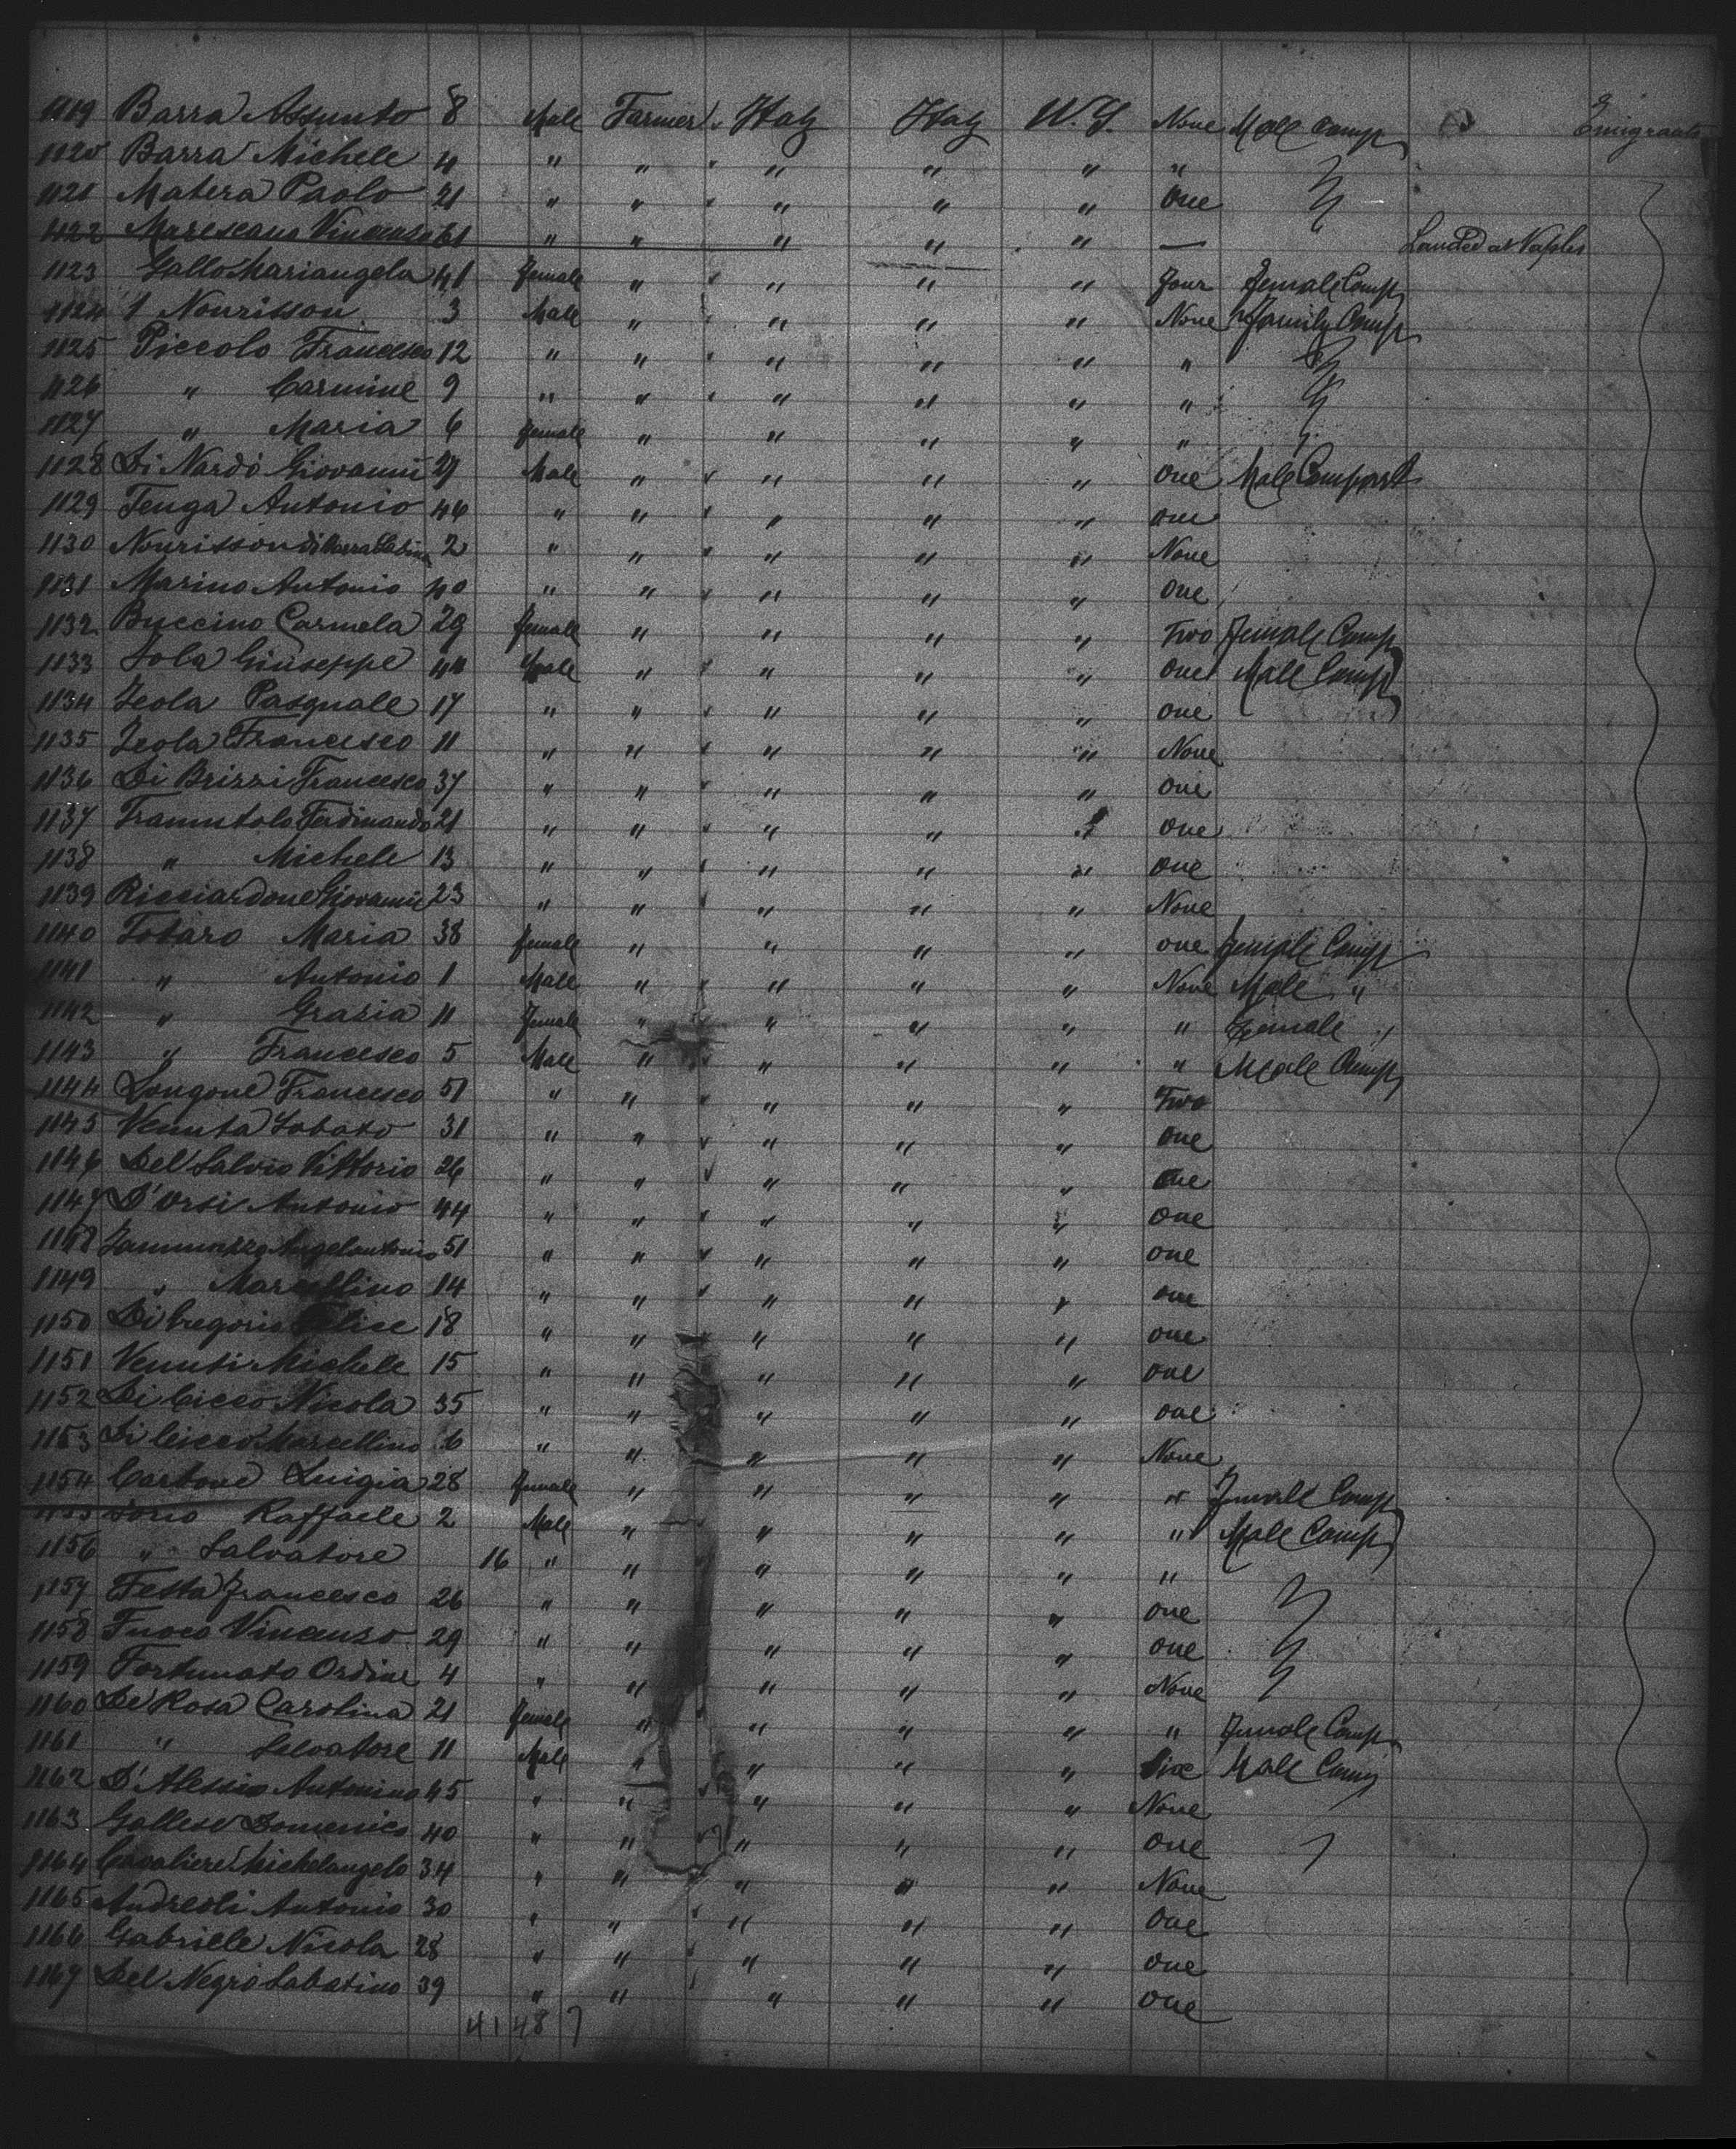 1119 Barra Assunto 8 Male Farmer Italy Italy U.S. None Male Comp Emigrants
1120 Barra Michele 4 " " " " " "
1121 Matera Paolo 21 " " " " " one
1122 Marescano Vincenzo 61 " " " " " — Landed at Naples
1123 Gallo Mariangela 41 female " " " " Four Female Comp
1124 1 Nourisson 3 Male " " " " None Family Comp
1125 Piccolo Francesco 12 " " " " " "
1126 " Carmine 9 " " " " " "
1127 " Maria 6 female " " " " "
1128 Di Nardo Giovanni 21 Male " " " " one Male Compart
1129 Tenga Antonio 46 " " " " " one
1130 Nourisson di Barra Sabina 2 " " " " " None
1131 Marino Antonio 40 " " " " " one
1132 Buccino Carmela 29 female " " " " Two Female Comp
1133 Iola Giuseppe 44 Male " " " " one Male Comp
1134 Zeola Pasquale 17 " " " " " one
1135 Zeola Francesco 11 " " " " " None
1136 Di Brizzi Francesco 37 " " " " " one
1137 Tramutolo Ferdinando 21 " " " " " one
1138 " Michele 13 " " " " " one
1139 Ricciardone Giovanni 23 " " " " " None
1140 Totaro Maria 38 female " " " " one Female Comp
1141 " Antonio 1 Male " " " " None Male "
1142 " Grazia 11 Female " " " " " Female "
1143 " Francesco 5 Male " " " " " Male Comp
1144 Longone Francesco 51 " " " " " Two
1145 Venuta Sabato 31 " " " " " one
1146 Del Salvio Vittorio 26 " " " " " one
1147 D'Orsi Antonio 44 " " " " " one
1148 Iammazzo Angelantonio 51 " " " " " one
1149 " Marcellino 14 " " " " " one
1150 Di Gregorio Felice 18 " " " " " one
1151 Venuti Michele 15 " " " " " one
1152 Di Cicco Nicola 35 " " " " " one
1153 Di Cicco Marcellino 6 " " " " " None
1154 Carbone Luigia 28 female " " " " " Female Comp
1155 Iorio Raffaele 2 Male " " " " " Male Comp
1156 " Salvatore 16 " " " " " "
1157 Festa Francesco 26 " " " " " one
1158 Fuoco Vincenzo 29 " " " " " one
1159 Fortunato Ordine 4 " " " " " None
1160 De Rosa Carolina 21 female " " " " " Female Comp
1161 " Salvatore 11 Male " " " " Six Male Comp
1162 D'Alessio Antonino 45 " " " " " None
1163 Gallese Domenico 40 " " " " " one
1164 Cavaliere Michelangelo 34 " " " " " None
1165 Andreoli Antonio 30 " " " " " one
1166 Gabriele Nicola 28 " " " " " one
1167 Del Negro Sabatino 39 " " " " " one
41 48 7